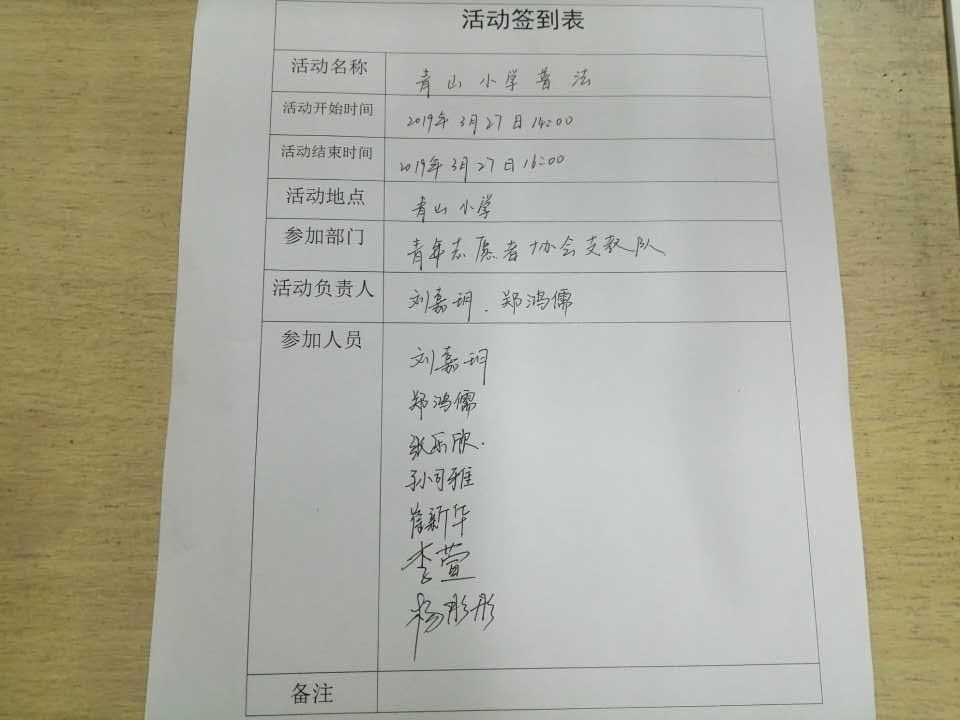 活动签到表
活动名称 青山小学普法
活动开始时间 2019年3月27日14:00
活动结束时间 2019年3月27日16:00
活动地点 青山小学
参加部门 青年志愿者协会支教队
活动负责人 刘嘉玥、郑鸿儒
参加人员
刘嘉玥
郑鸿儒
张乐欣.
孙可雅
崔新华
李萱
杨彤彤
备注